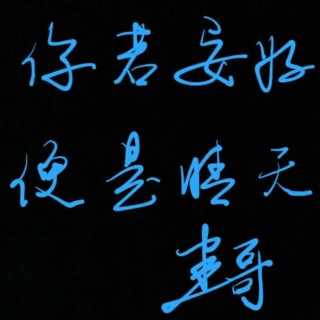 你若安好
便是晴天
建哥